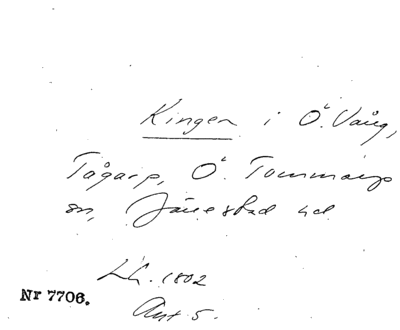 Kingen i Ö. Vång,
Tågarp, Ö. Tommarps
sn, Järrestad hd
LL. 1802
Akt 5.
Nr 7706.